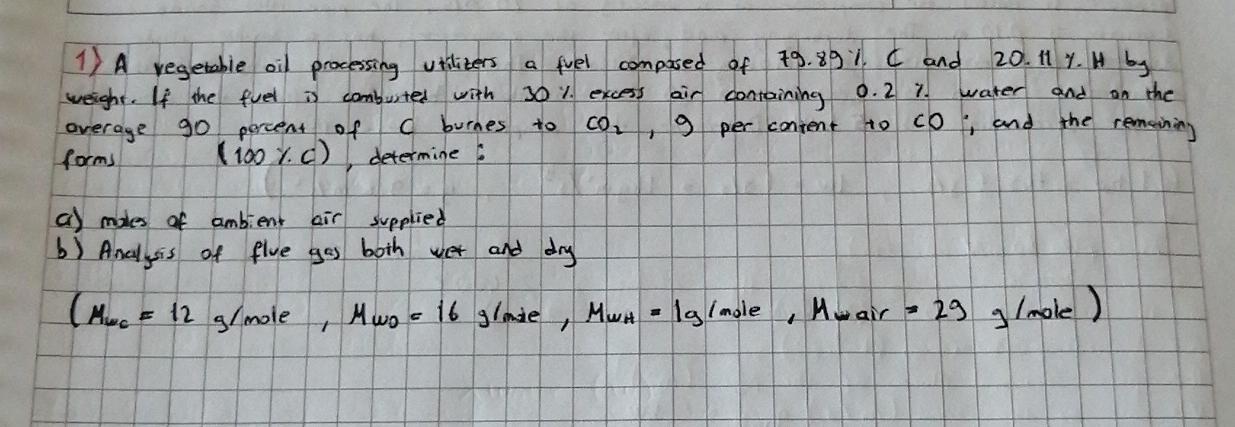 1) A vegetable oil processing utilizers a fuel composed of 79.89 % C and 20.11 % H by
weight. If the fuel is combusted with 30 % excess air containing 0.2 % water and on the
average 90 percent of C burnes to CO₂, 9 per content to CO ; and the remaining
forms (100 % C), determine :
a) moles of ambient air supplied
b) Analysis of flue gas both wet and dry
(Mwc = 12 g/mole , Mwo = 16 g/mole , MwH = 1g/mole , Mwair = 29 g/mole)